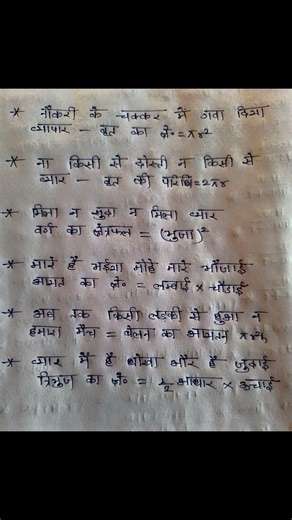 * नौकरी के चक्कर में गवा दिया
व्यापार - वृत का क्षे॰ = πr²
* ना किसी से दोस्ती न किसी से
प्यार - वृत की परिधि = 2πr
* मिला न जुवा न मिला प्यार
वर्ग का क्षेत्रफल = (भुजा)²
* मारे है भईया मोहे मारे भौजाई
आयत का क्षे॰ = लम्बाई × चौडाई
* अब तक किसी लडकी से हुआ न
हमारा मैच = बेलन का आयतन πr²h
* प्यार में है धोखा और है जुदाई
त्रिभुज का क्षे॰ = ½ आधार × ऊचाई